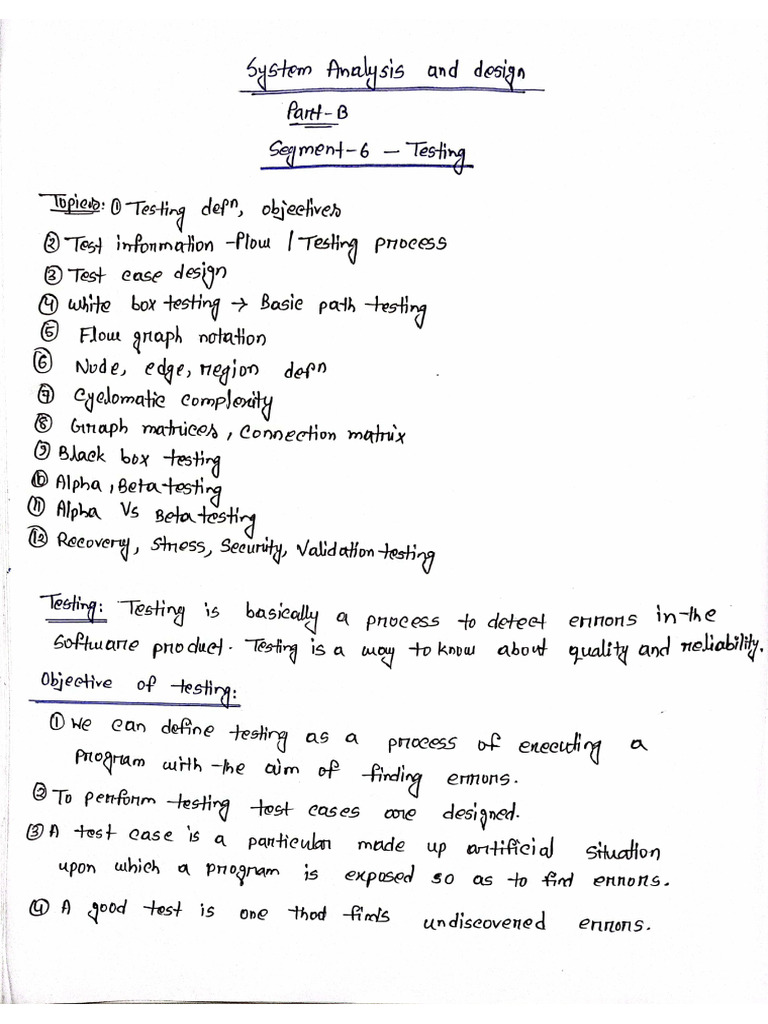 System Analysis and design
Part-B
Segment-6 – Testing
Topics: ① Testing defⁿ, objectives
② Test information-flow / Testing process
③ Test case design
④ White box testing → Basic path testing
⑤ Flow graph notation
⑥ Node, edge, region defⁿ
⑦ Cyclomatic complexity
⑧ Graph matrices, Connection matrix
⑨ Black box testing
⑩ Alpha, Beta testing
⑪ Alpha Vs Beta testing
⑫ Recovery, Stress, Security, Validation testing
Testing: Testing is basically a process to detect errors in the
software product. Testing is a way to know about quality and reliability.
Objective of testing:
① We can define testing as a process of executing a
program with the aim of finding errors.
② To perform testing test cases are designed.
③ A test case is a particular made up artificial situation
upon which a program is exposed so as to find errors.
④ A good test is one that finds undiscovered errors.